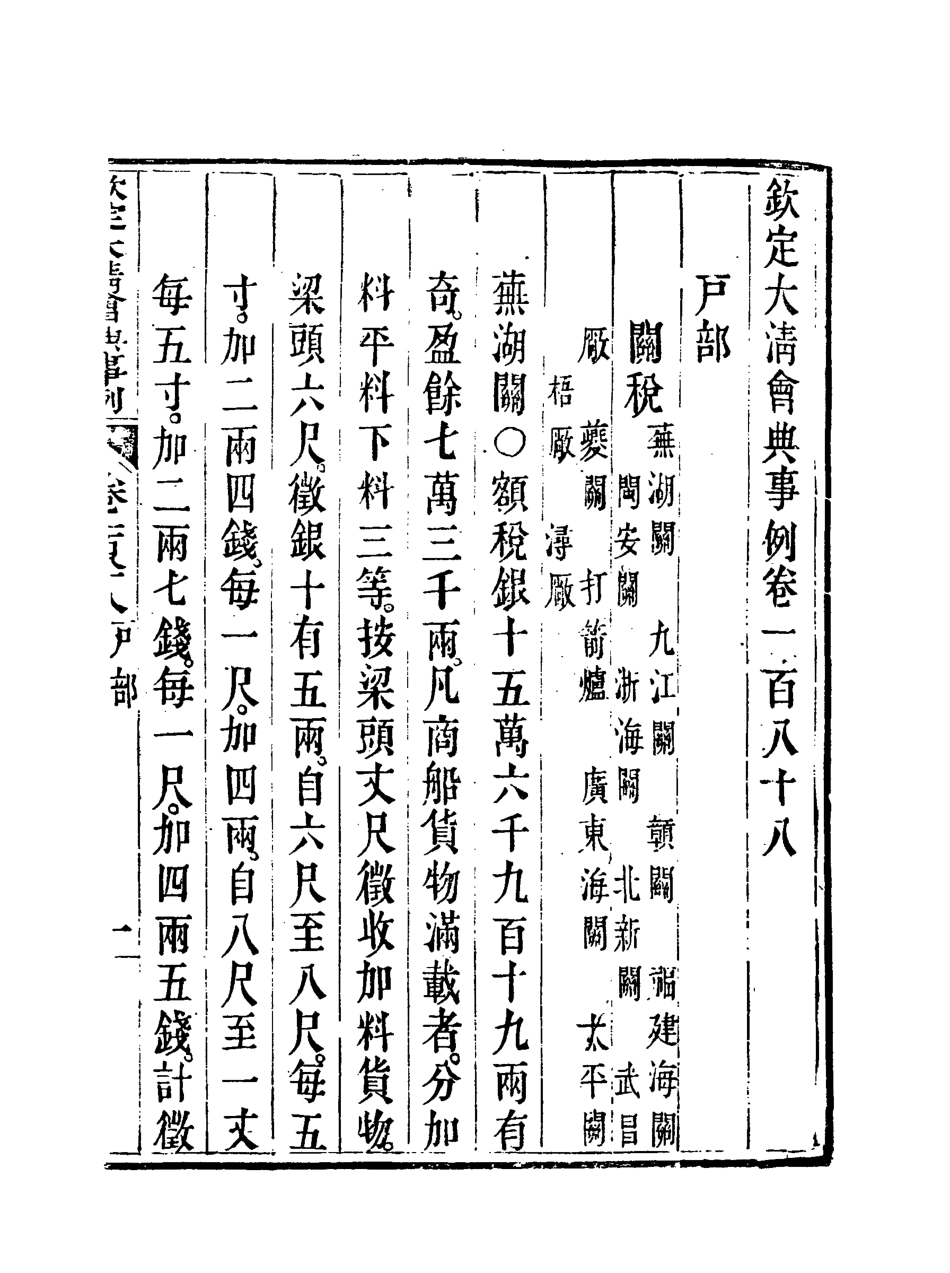 欽定大淸會典事例卷一百八十八
戶部
關稅 蕪湖關 九江關 贛關 福建海關
閩安關 浙海關 北新關 武昌
廠 夔關 打箭爐 廣東海關 太平關
梧廠 潯廠
蕪湖關○額稅銀十五萬六千九百十九兩有
奇。盈餘七萬三千兩。凡商船貨物滿載者。分加
料平料下料三等。按梁頭丈尺徵收加料貨物。
梁頭六尺。徵銀十有五兩。自六尺至八尺。每五
寸。加二兩四錢。每一尺。加四兩。自八尺至一丈
每五寸。加二兩七錢。每一尺。加四兩五錢。計徵
欽定大清會典事例 卷一百八十八 戶部 一